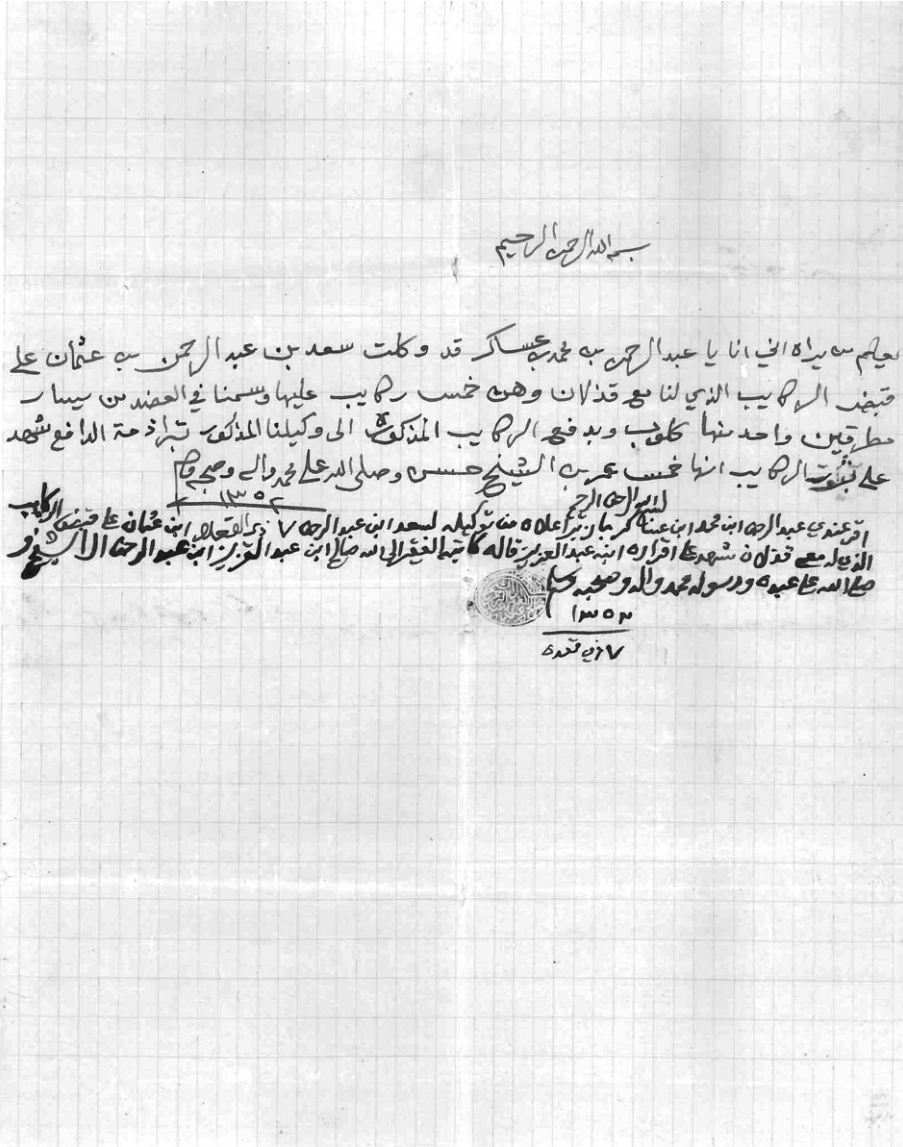 بسم الله الرحمن الرحيم
يعلم من يراه اني انا يا عبد الرحمن بن محمد بن عساكر قد وكلت سعد بن عبد الرحمن بن عثمان على
قبض الركايب الذي لنا مع قذلان وهن خمس ركايب عليها وسمنا في العضد من يسار
مطرقين واحد منها كلوب وبدفع الركايب المذكورة الى وكيلنا المذكور تبرا ذمة الدافع شهد
على ثبوت الركايب انها خمس عمر بن الشيخ حسن وصلى الله على محمد واله وصحبه وسلم
١٣٥٢
بسم الله الرحمن الرحيم
اقر عندي عبد الرحمن ابن محمد ابن عساكر بما زبر اعلاه من توكيله لسعد ابن عبد الرحمن ابن عثمان على قبض الركايب
٧ ذي القعدة
الذي له مع قذلان شهد على اقراره ابنه عبد العزيز قاله كاتبه الفقير الى الله صالح ابن عبد العزيز ابن عبد الرحمن ال الشيخ و
صلى الله على عبده ورسوله محمد واله وصحبه وسلم
١٣٥٢
٧ ذي قعدة